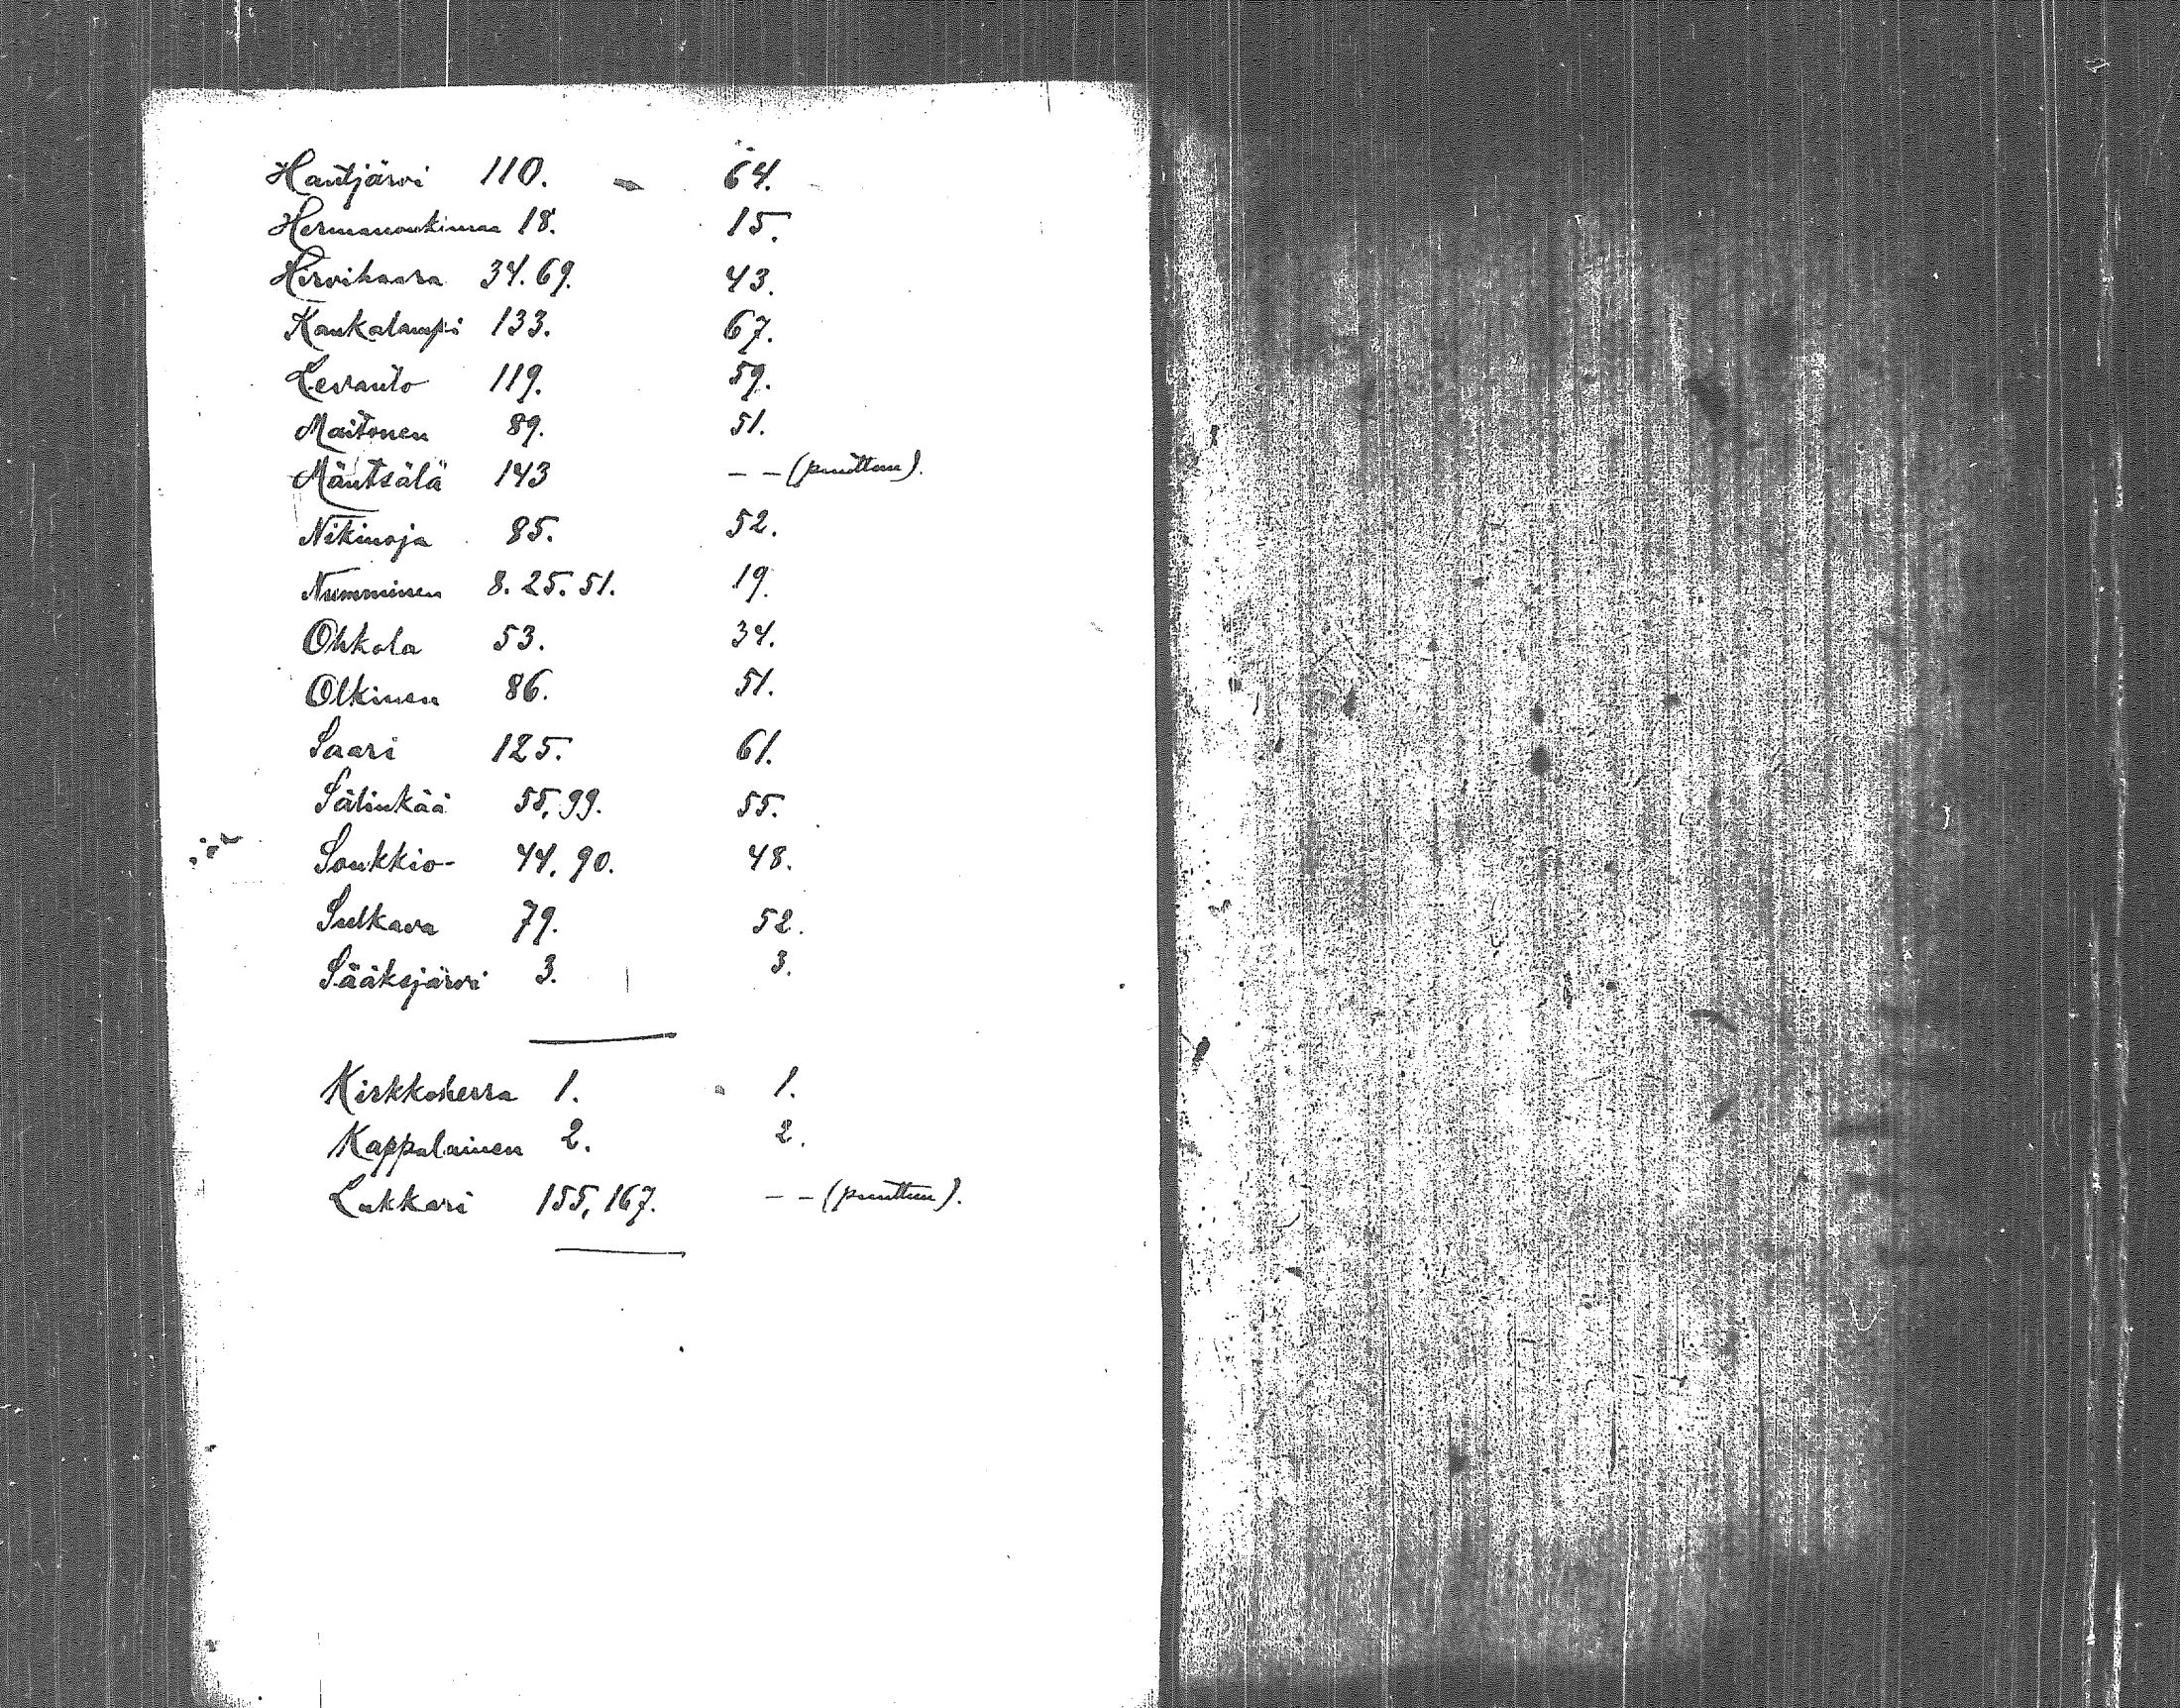 Hautjärvi 110. 64.
Hermanonkimaa 18. 15.
Hirvihaara 34. 69. 43.
Kaukalampi 133. 67.
Levanto 119. 59.
Maitonen 89. 51.
Mäntsälä 143 – – (puuttuu).
Nikinoja 85. 52.
Numminen 8. 25. 51. 19.
Ohkola 53. 34.
Olkinen 86. 51.
Saari 125. 61.
Sälinkää 55, 99. 55.
Soukkio- 44, 90. 48.
Sulkava 79. 52.
Sääksjärvi 3. 3.
Kirkkoherra 1. 1.
Kappalainen 2. 2.
Lukkari 155, 167. – – (puuttuu).